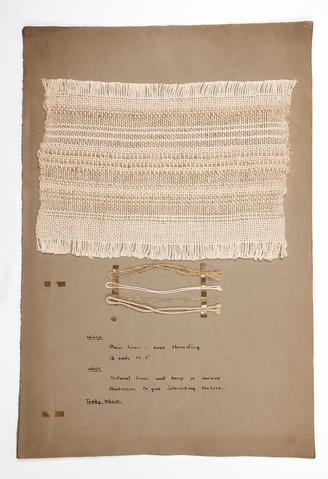 Warp.
Plain linen - even threading
16 ends to 1"
Weft.
Natural linen and hemp in various
thicknesses to give interesting texture.
Tabby Weave.